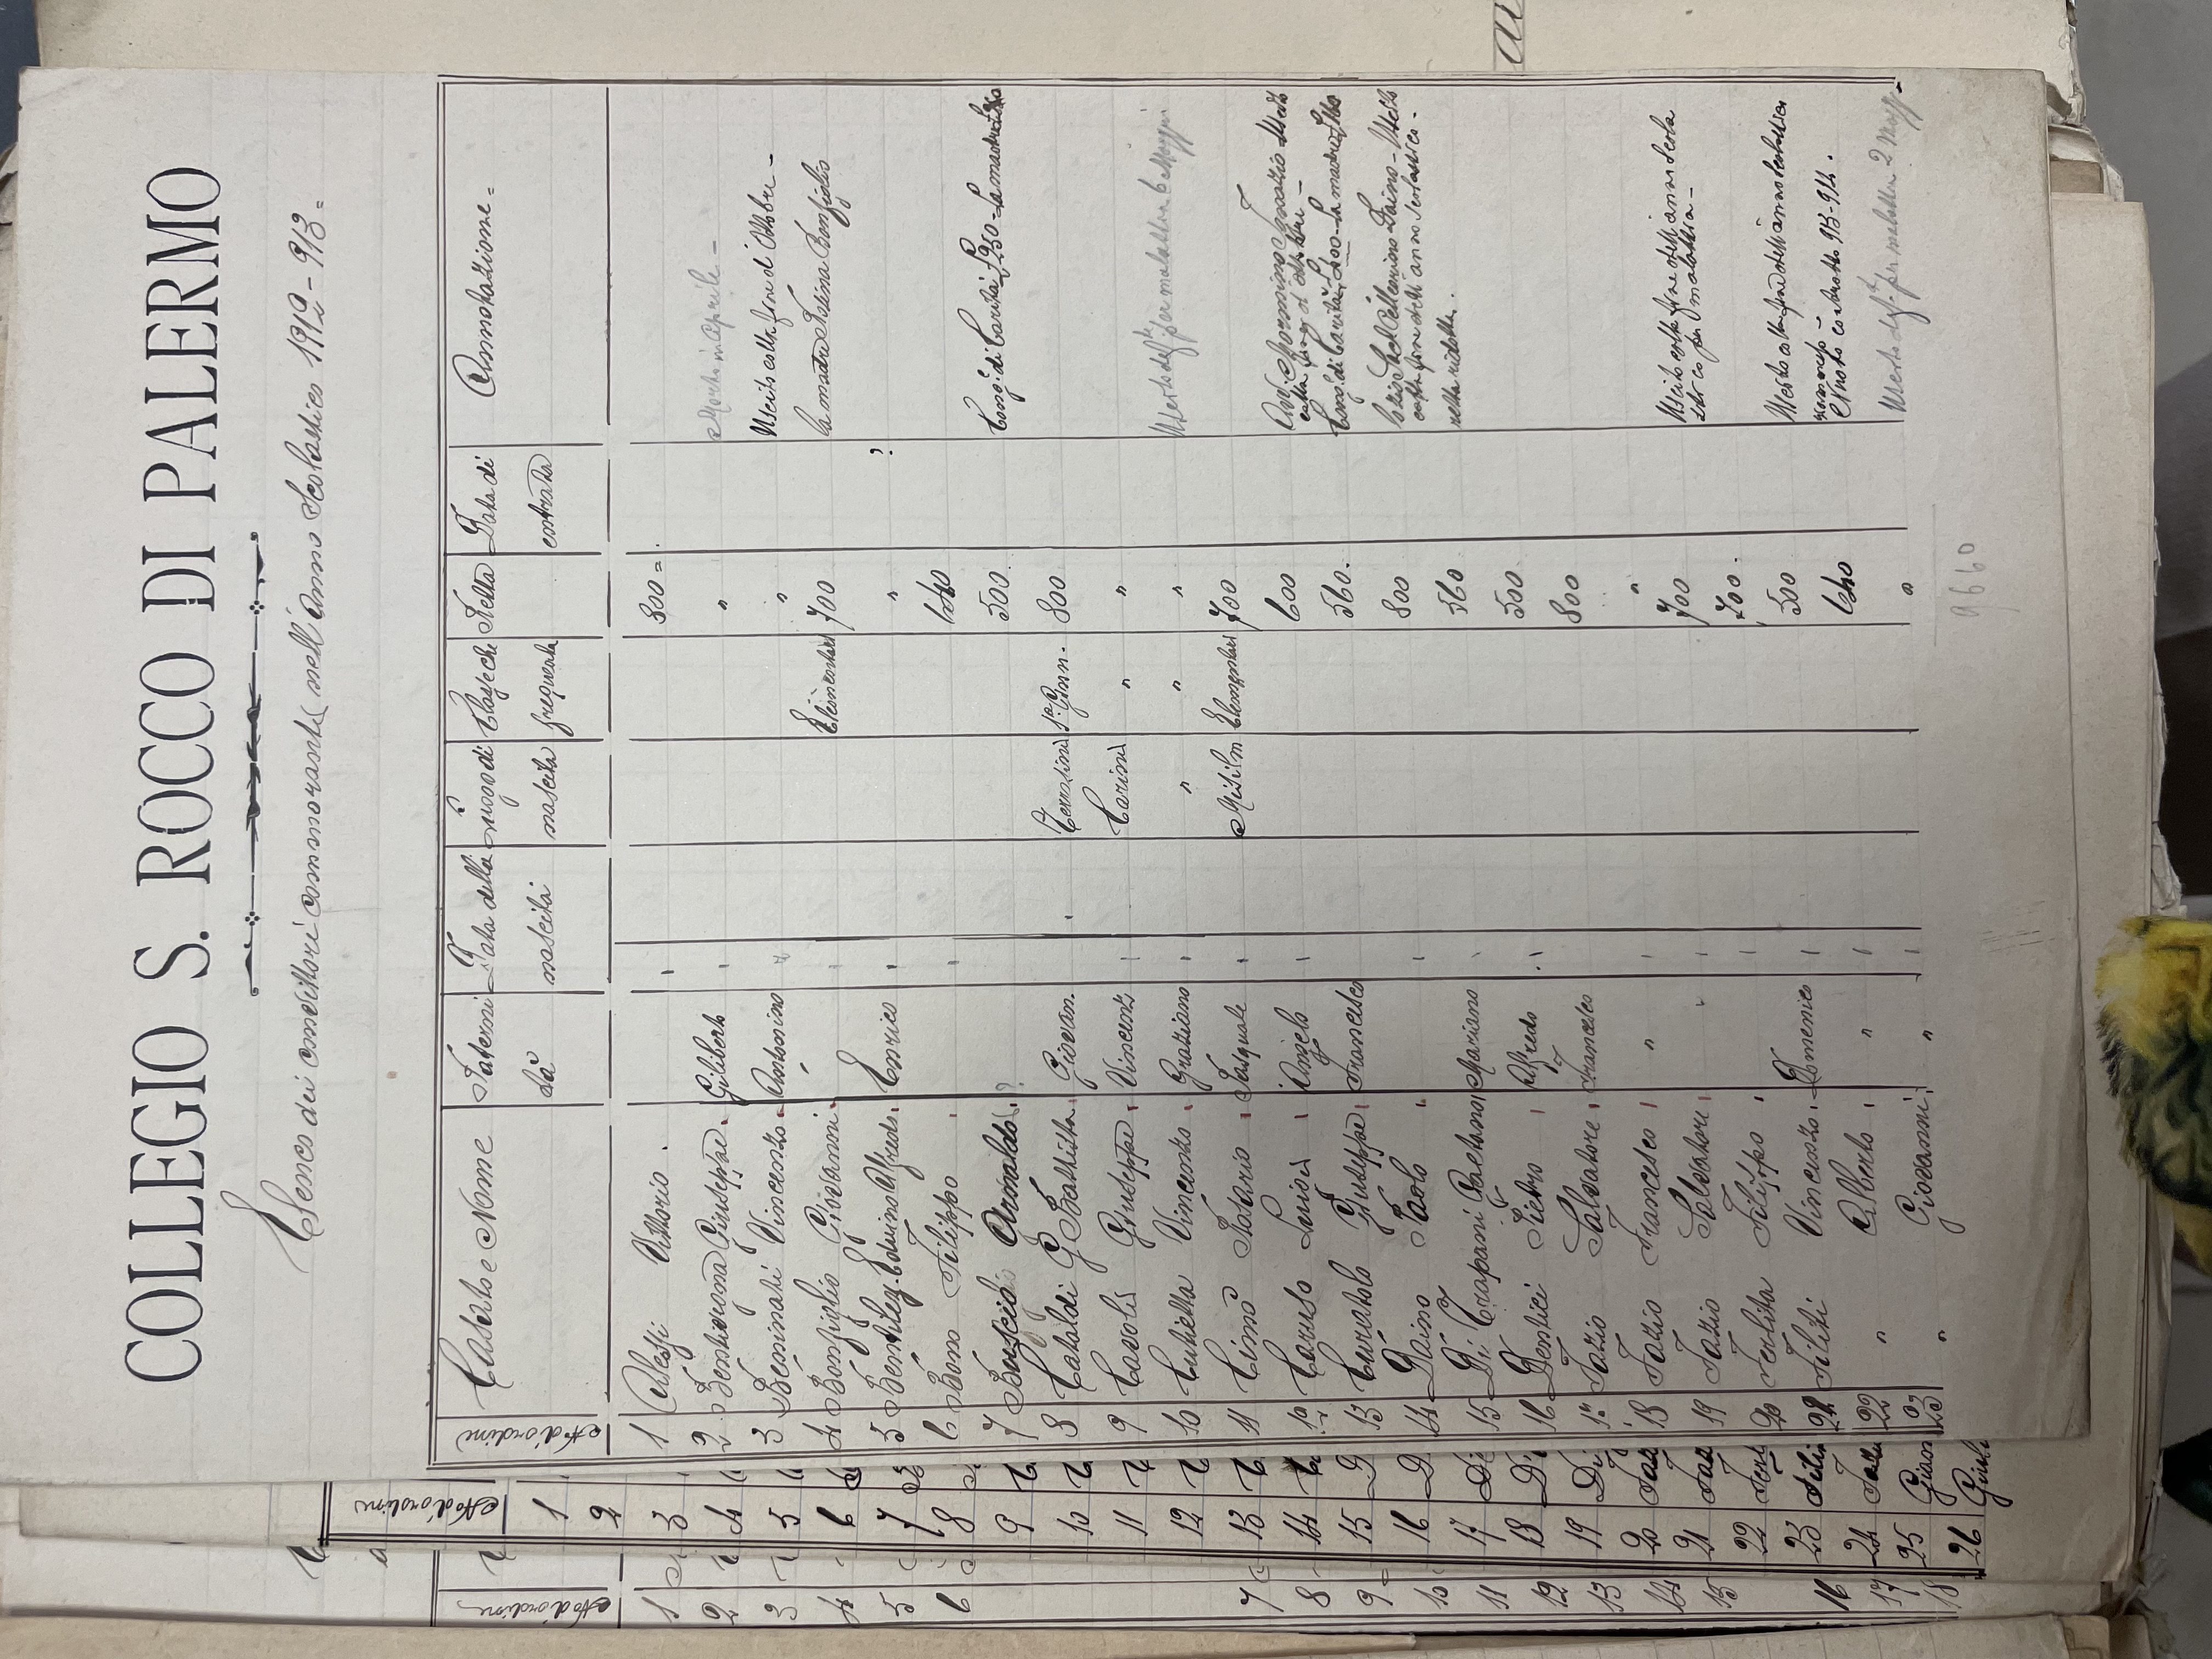 COLLEGIO S. ROCCO DI PALERMO
Elenco dei convittori commoranti nell'Anno Scolastico 1912-913=
N° d'ordine Casato e Nome Paternità Data della nascita Luogo di nascita Classe che frequenta Retta Data di entrata Annotazione=
1 Alessi Vittorio. 800=
2 Bentivegna Giuseppe Giliberto " Morto in Aprile-
3 Beninati Vincenzo Antonino " Uscito colla fine d'Ottobre-
4 Bonfiglio Giovanni Elementari 700 la madre Salina Bonfiglio
5 Bentilez Eduino Alfredo Enrico " ?
6 Bono Filippo 640
7 Bruscia Arnaldo ? 500 Cong. di Carità £250-La madre
8 Cataldi G Battista Giovan. Terrasini 1ª Ginn. 800
9 Cavoli Giuseppe Vincenzo Carini " "
10 Cutietta Vincenzo Graziano " " " Uscito per malattia 6 Maggio
11 Cimò Rosario Pasquale Misilm Elementari 700
12 Caruso Luigi Angelo 600 colla fine di ottobre-
13 Curatolo Giuseppe Francesco 560. Cong. di Carità £200-La madre
14 Daino Paolo 800 Zio Sac Pellegrino Daino-Uscito colla fine dell'anno scolastico-
retta ridotta.
15 Di Trapani Gaetano Mariano 560
16 Dentici Pietro Alfredo 500
17 Fazio Salvatore Francesco 800
18 Fazio Francesco " "
19 Fazio Salvatore 700 Uscito colla fine dell'anno scola
stico per malattia-
20 Ferlita Filippo 700.
21 Filiti Vincenzo Domenico 500 Uscito colla fine dell'anno scolastico
22 " Alberto " 640 913-914.
23 " Giovanni " " Uscito per malattia 2 Magg-
9660
N° d'ordine
1
2
3
4
5
6
7
8
9
10
11
12
13
14
15
16
17
18
19
20
21
22
23
24
25
26
N° d'ordine
1
2
3
4
5
6
7
8
9
10
11
12
13
14
15
16
17
18